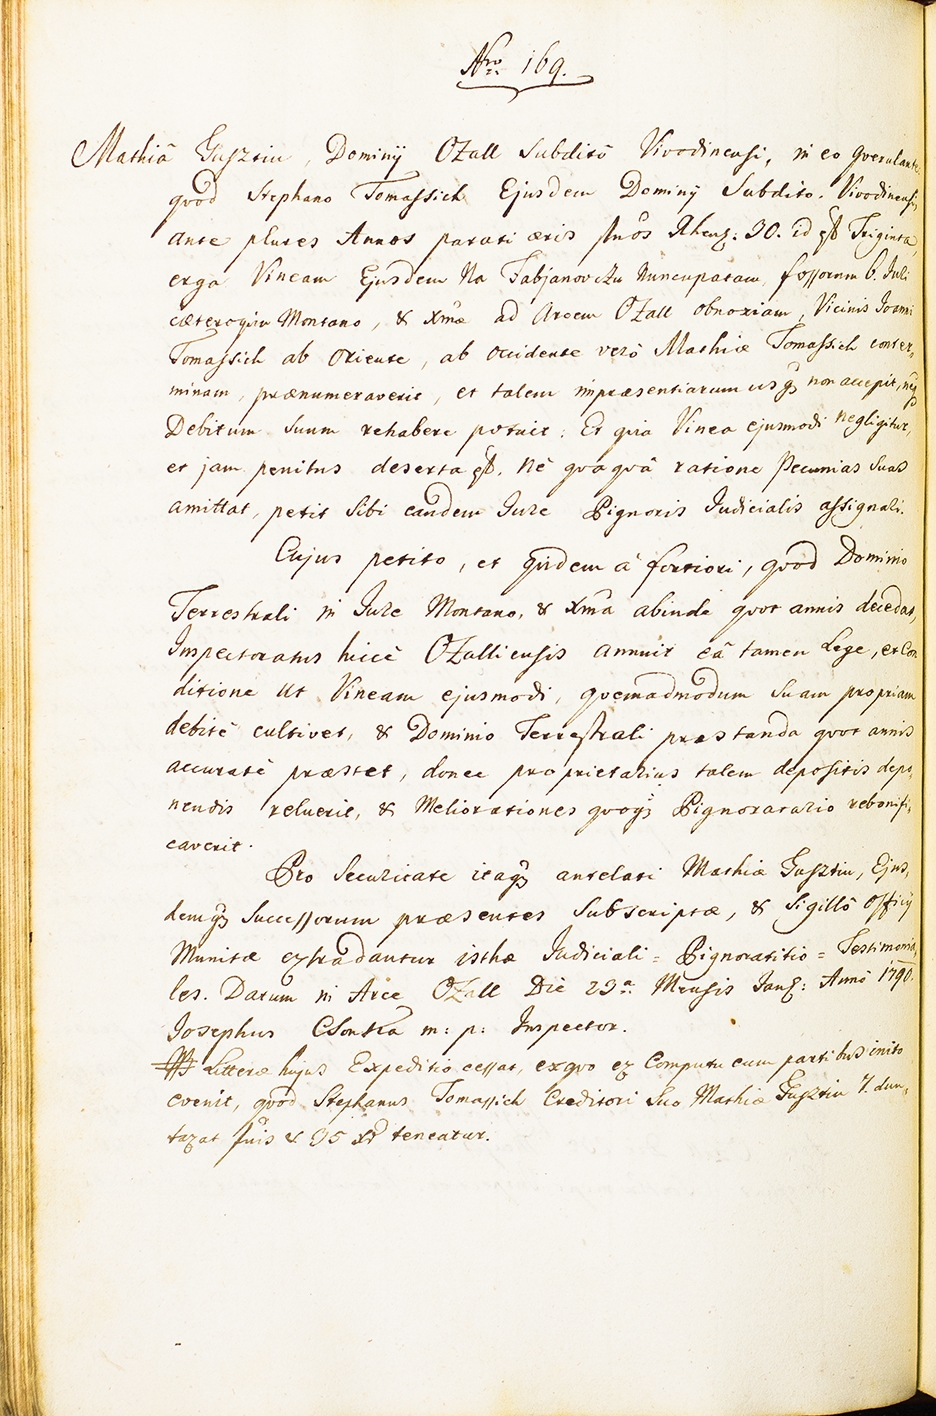 Nro 169.
Mathiâ Gusztin, Dominij Ozall Subditô Vivodinensi, in eo qverulante
qvod Stephano Tomassich Ejusdem Dominij Subdito Vivodinensi,
ante plures Annos parati æris fnos Rhens: 30. id est Triginta,
erga Vineam Ejusdem Na Fabjanovczu Nuncupatam, fossorum 6. Juli
cæteroqin Montano, & Xmæ ad Arcem Ozall obnoxiam, Vicinis Joanni
Tomassich ab oriente, ab occidente verò Mathiæ Tomassich conter,
minam, prænumeraverit, et talem impræsentiarum usq3 non accepit, neq3
Debitum Suum rehabere potuit: Et qvia Vinea ejusmodi negligitur,
et jam penitus deserta est, nè qvaqvâ ratione Pecunias Suas
amittat, petit Sibi eandem Jure Pignoris Judicialis assignari.
Cujus petito, et qvidem â fortiori, qvod Dominio
Terrestrali in Jure Montano, & Xma abinde qvot annis decedat,
Inspectoratus hiccè Ozalliensis annuit eâ tamen Lege, et Con
ditione ut Vineam ejusmodi, qvemadmodum Suam propriam
debitè cultivet, & Dominio Terrestrali præstanda qvot annis
accuratè præstet, donec proprietarius talem depositis depo,
nendis reluerit, & Meliorationes qvoq3 Pignoratario rebonifi,
caverit.
Pro Securitate itaq3 antelati Mathiæ Gusztin, Ejus,
demq3 Successorum præsentes Subscriptæ, & Sigillô Officij
Munitæ extradantur isthæ Judiciali = Pignoratitio = Testimonia,
les. Datum in Arce Ozall Diè 23a Mensis Janr: Annô 1790.
Josephus Csontka m: p: Inspector.
Litteræ hujus Expeditio cessat, exqvo ex Computu cum partibus inito
evenit, qvod Stephanus Tomassich Creditori Suo Mathiæ Gusztin 7. dun,
taxat fnis & 35 xr teneatur.